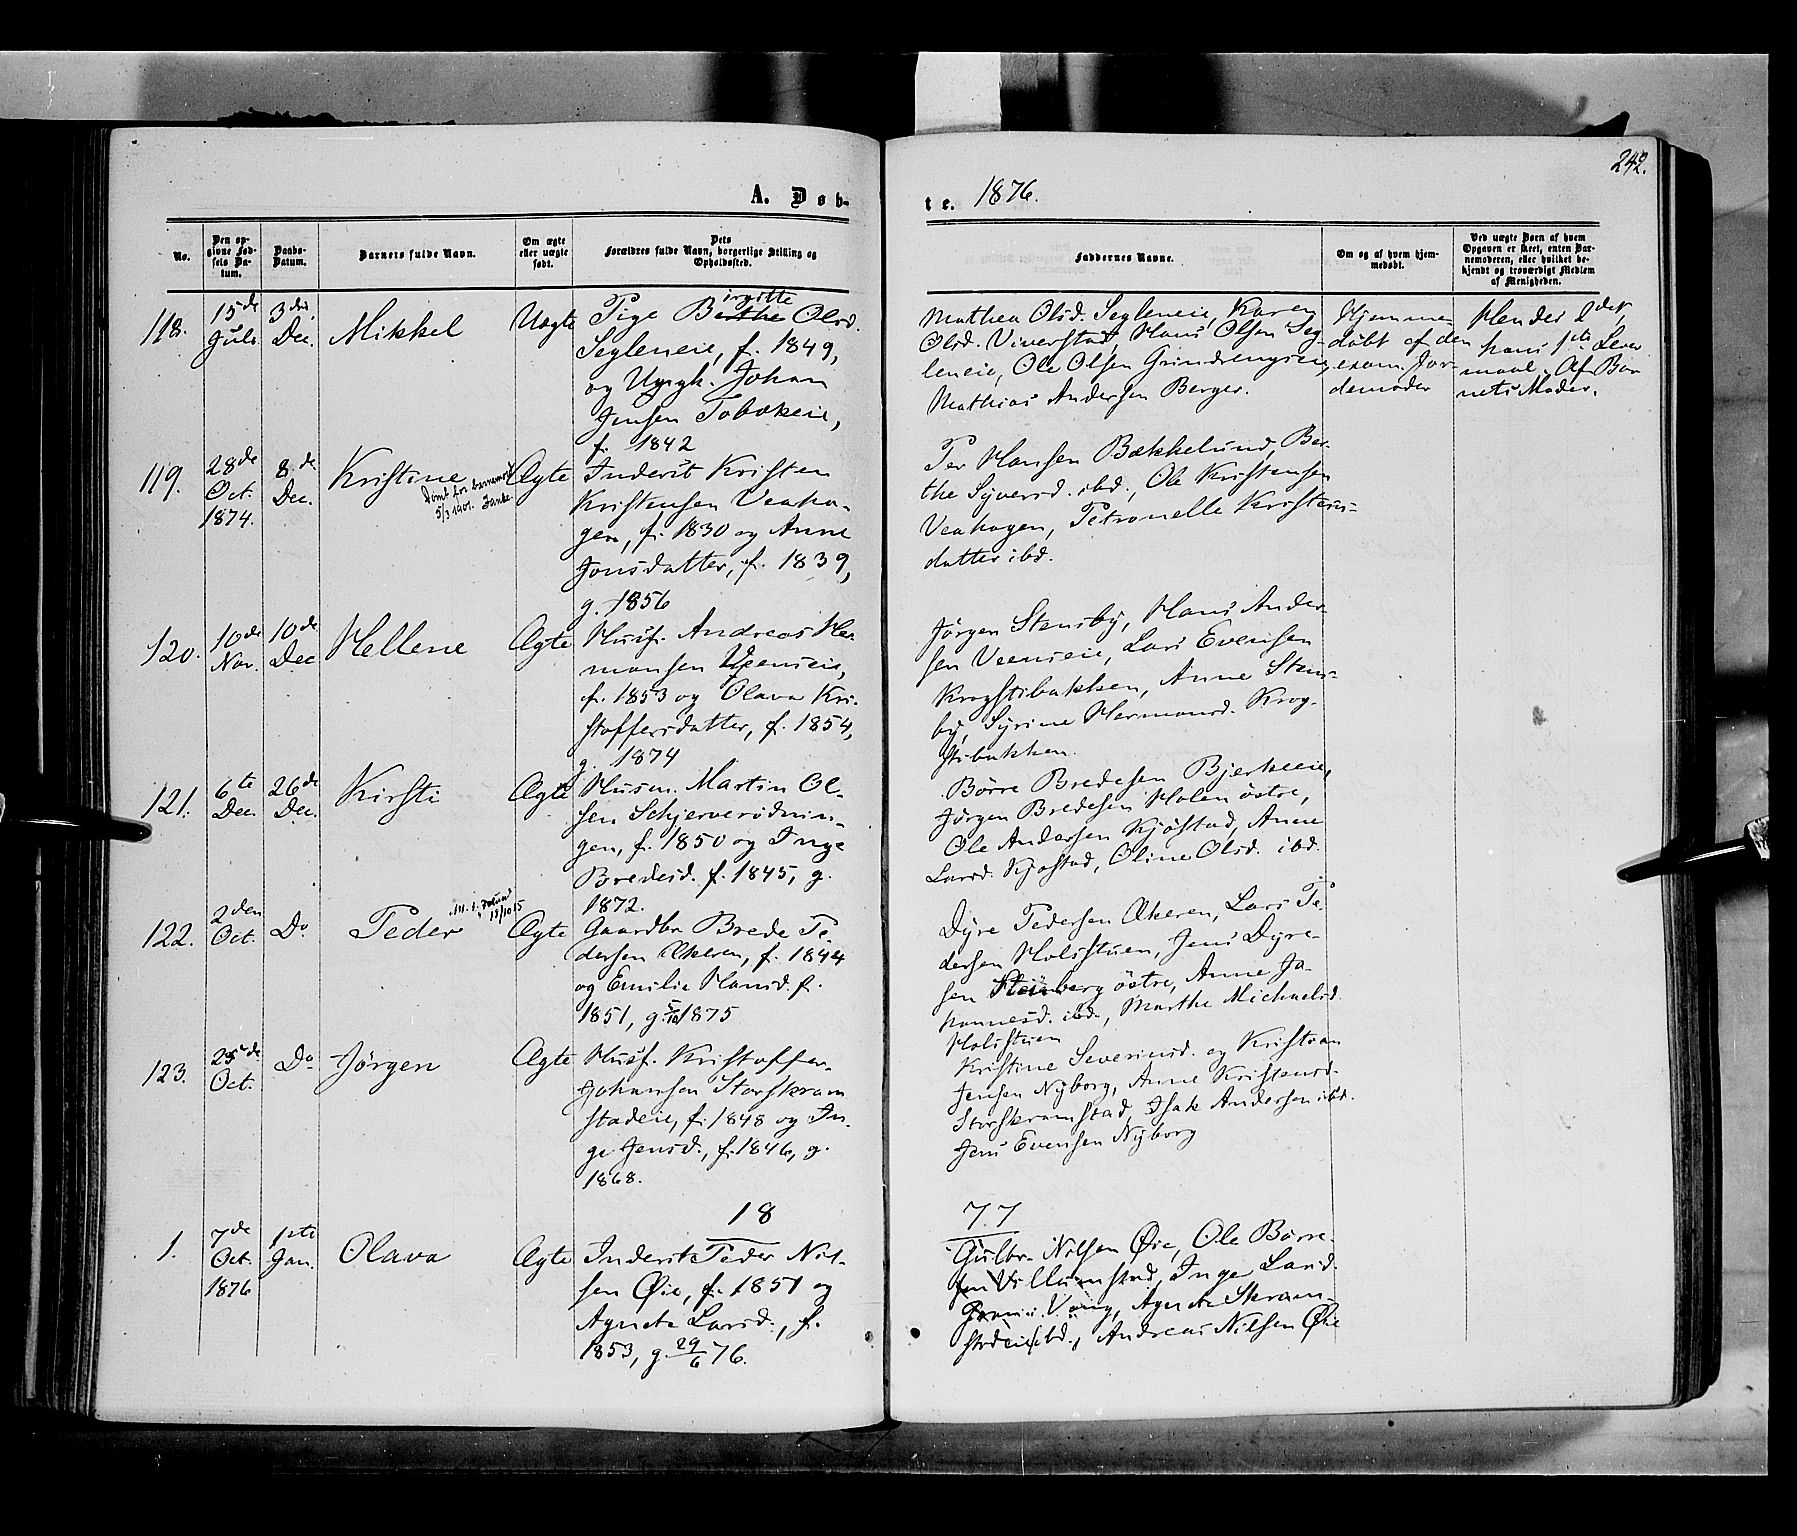 242.
A. Døb-
te. 1876.
No.
Den op-
givne Fød-
sels Da-
tum.
Daabs-
Datum.
Barnets fulde Navn.
Om ægte
eller uægte
født.
Dets
Forældres fulde Navn, borgerlige Stilling og
Opholdssted.
Faddernes Navne.
Om og af hvem hjem-
medøbt.
Ved uægte Børn af hvem
Opgaven er skeet, enten Bar-
nemoderen, eller hvilket be-
kjendt og troværdigt Medlem
af Menigheden.
118.
15de
Juli
3die
Dec.
Mikkel
Uægte
Pige Birgitte Olsd.
Segleneie, f. 1849,
og Ungk. Johan
Jensen Tobokeie,
f. 1842
Mathea Olsd. Segleneie, Karen
Olsd. Viverstad, Hans Olsen Seg-
leneie, Ole Olsen Grindengseie,
Mathias Andersen Berger.
Hjemme-
döbt af den
exam. Jor-
demoder
Hendes 2det,
hans 1ste Leier
maal. Af Bar
nets Moder.
119.
28de
Oct.
1874.
8de
Dec.
Kristine
Dömt for barnemord
5/3 1901.
Ægte
Inderst Kristen
Kristensen Veaha-
gen, f. 1830 og Anne
Jonsdatter, f. 1839,
g. 1856
Per Hansen Bækkelund, Ber-
the Syversd. ibd., Ole Kristensen
Veahagen, Petronelle Kristens-
datter ibd.
120.
10de
Nov.
10de
Dec
Hellene
Ægte
Husf. Andreas Her-
mansen Veenseie,
f. 1853 og Olava Kri-
stoffersdatter, f. 1854,
g. 1874
Jörgen Stensby, Hans Ander-
sen Veenseie, Lars Evensen
Krogstibakken, Anne Stens-
by, Syrine Hermansd. Krog-
stibakken.
121.
6te
Dec
26de
Dec.
Kirsti
Ægte
Husm. Martin Ol-
sen Schjerverödnin-
gen, f. 1850 og Inge
Bredesd. f. 1845, g.
1872.
Börre Bredesen Bjerkeeie,
Jörgen Bredesen Holen östre,
Ole Andersen Kjöstad, Anne
Larsd. Kjöstad, Oline Olsd. ibd.
122.
2den
Oct.
Do
Peder
15/10 15
Ægte
Gaardbr Brede Pe-
dersen Ækeren, f. 1844
og Emilie Hansd. f.
1851, g. 5/10 1875
Dyre Pedersen Ækeren, Lars Pe-
dersen Holsstuen, Jens Dyre-
sen Steinberg östre, Anne Jo-
hannesd. ibd., Marthe Michaelsd.
Holsstuen
123.
25de
Oct.
Do
Jörgen
Ægte
Husf. Kristoffer
Johansen Storskram
stadeie, f. 1848 og In-
ge Jensd., f. 1846, g.
1868.
Kristine Severinsd. og Kristian
Jensen Nyborg, Anne Kristensd.
Storskramstad, Isak Andersen ibd.
Jens Evensen Nyborg
18
77
1.
7de
Oct.
1876
1ste
Jan.
Olava
Ægte
Inderst Peder Nil-
sen Øie, f. 1851 og
Agnete Larsd., f.
1853, g. 29/6 76.
Gulbr. Nilsen Øie, Ole Börre-
sen Villumstad, Inger Larsd.
Vang, Agnete Skram-
stadeie ibd., Andreas Nilsen Øie